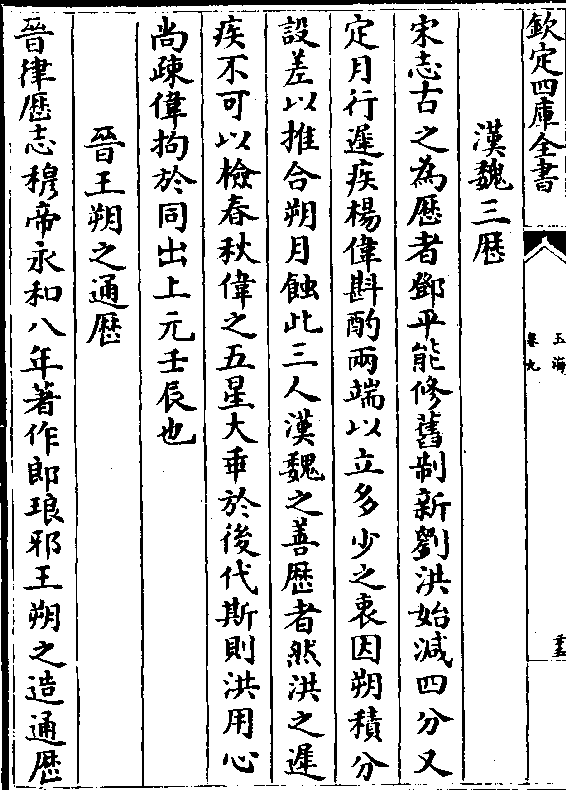 欽定四庫全書
玉海
卷九
漢魏三歴
宋志古之為歴者鄧平能修舊制新劉洪始減四分又
定月行遲疾楊偉斟酌兩端以立多少之衷因朔積分
設差以推合朔月蝕此三人漢魏之善歴者然洪之遲
疾不可以檢春秋偉之五星大乖於後代斯則洪用心
尚疎偉拘於同出上元壬辰也
晉王朔之通歴
晉律歴志穆帝永和八年著作郎琅邪王朔之造通歴